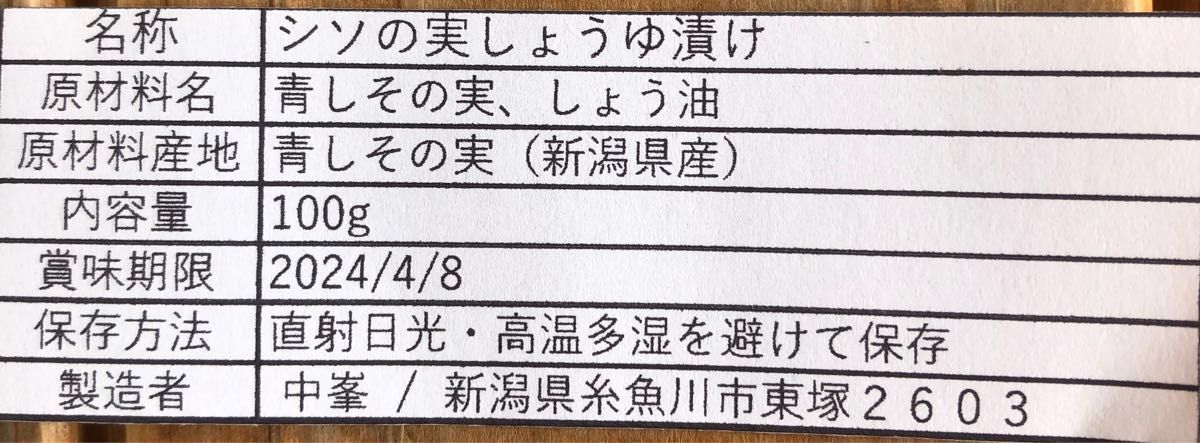 名称 シソの実しょうゆ漬け
原材料名 青しその実、しょう油
原材料産地 青しその実（新潟県産）
内容量 100g
賞味期限 2024/4/8
保存方法 直射日光・高温多湿を避けて保存
製造者 中峯 / 新潟県糸魚川市東塚２６０３